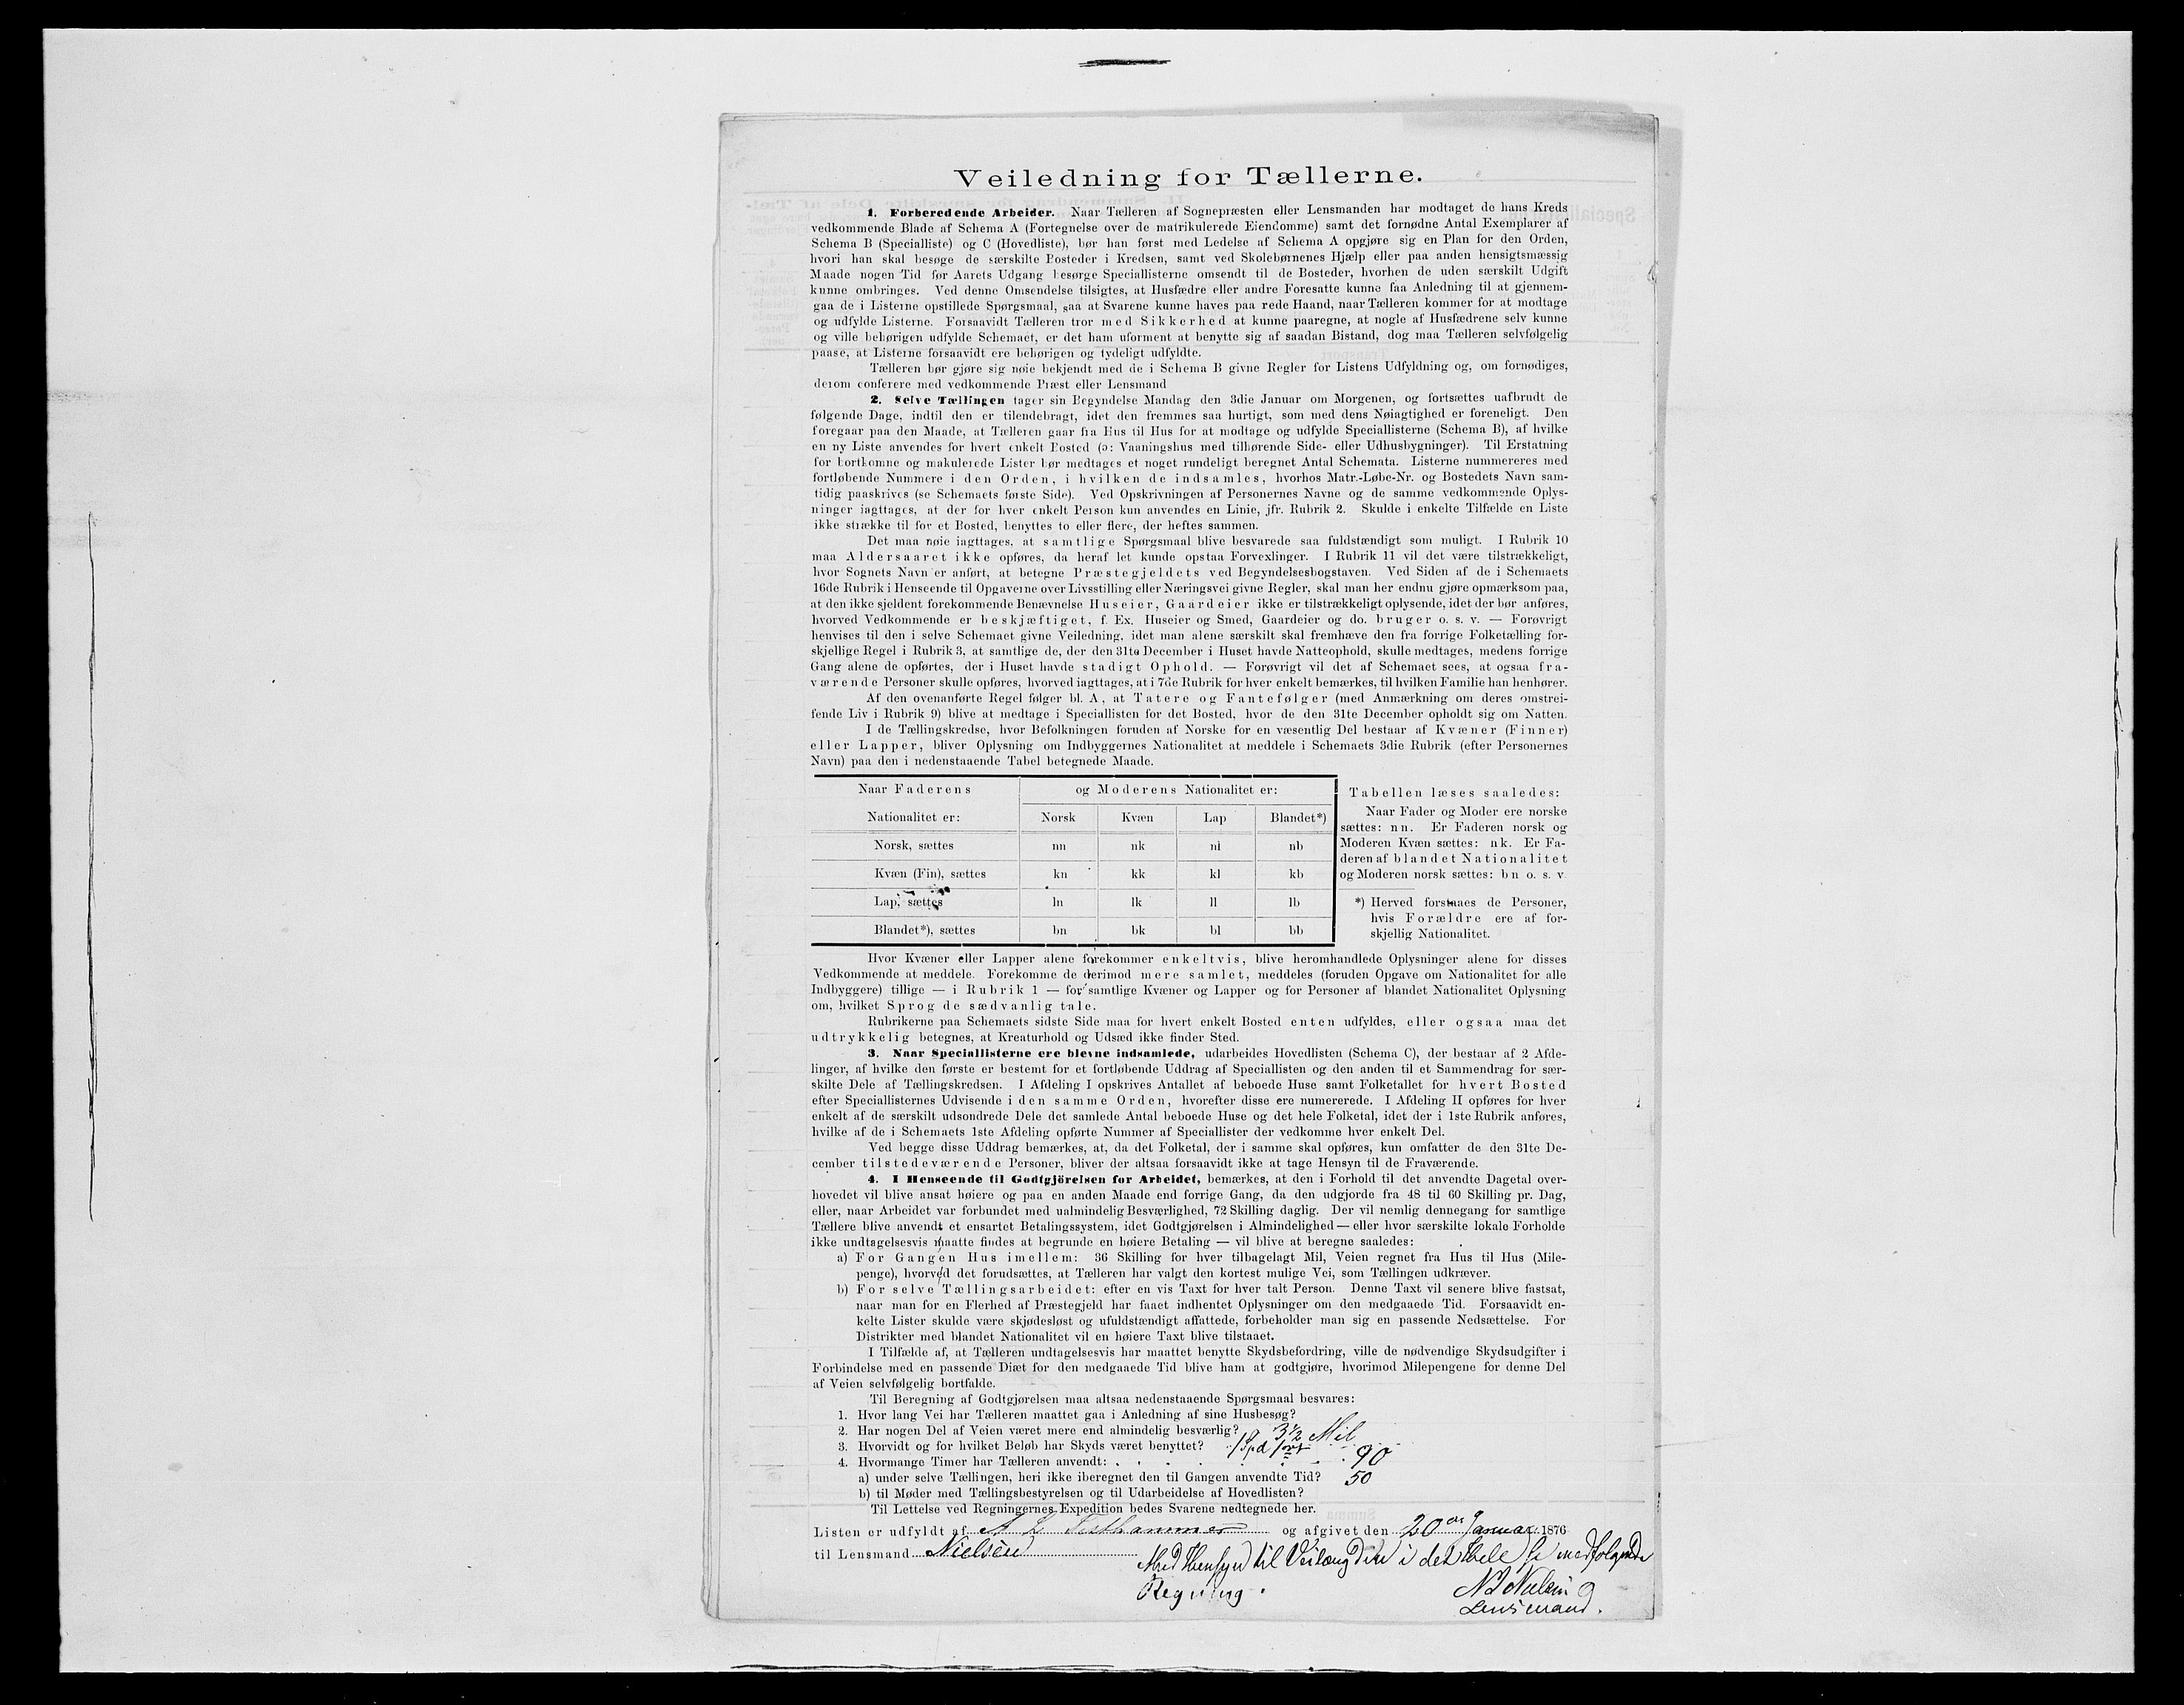 Veiledning for Tællerne.
1. Forberedende Arbeider. Naar Tælleren af Sognepræsten eller Lensmanden har modtaget de hans Kreds
vedkommende Blade af Schema A (Fortegnelse over de matrikulerede Eiendomme) samt det fornødne Antal Exemplarer af
Schema B (Specialliste) og C (Hovedliste), bør han først med Ledelse af Schema A opgjøre sig en Plan for den Orden,
hvori han skal besøge de særskilte Bosteder i Kredsen, samt ved Skolebørnenes Hjælp eller paa anden hensigtsmæssig
Maade nogen Tid før Aarets Udgang besørge Speciallisterne omsendt til de Bosteder, hvorhen de uden særskilt Udgift
kunne ombringes. Ved denne Omsendelse tilsigtes, at Husfædre eller andre Foresatte kunne faa Anledning til at gjennem-
gaa de i Listerne opstillede Spørgsmaal, saa at Svarene kunne haves paa rede Haand, naar Tælleren kommer for at modtage
og udfylde Listerne. Forsaavidt Tælleren tror med Sikkerhed at kunne paaregne, at nogle af Husfædrene selv kunne
og ville behørigen udfylde Schemaet, er det ham uforment at benytte sig af saadan Bistand, dog maa Tælleren selvfølgelig
paase, at Listerne forsaavidt ere behørigen og tydeligt udfyldte.
Tælleren bør gjøre sig nøie bekjendt med de i Schema B givne Regler for Listens Udfyldning og, om fornødiges,
derom conferere med vedkommende Præst eller Lensmand
2. Selve Tællingen tager sin Begyndelse Mandag den 3die Januar om Morgenen, og fortsættes uafbrudt de
følgende Dage, indtil den er tilendebragt, idet den fremmes saa hurtigt, som med dens Nøiagtighed er foreneligt. Den
foregaar paa den Maade, at Tælleren gaar fra Hus til Hus for at modtage og udfylde Speciallisterne (Schema B), af hvilke
en ny Liste anvendes for hvert enkelt Bosted (ɔ: Vaaningshus med tilhørende Side- eller Udhusbygninger). Til Erstatning
for bortkomne og makulerede Lister bør medtages et noget rundeligt beregnet Antal Schemata. Listerne nummereres med
fortløbende Nummere i den Orden, i hvilken de indsamles, hvorhos Matr.-Løbe-Nr. og Bostedets Navn sam-
tidig paaskrives (se Schemaets første Side). Ved Opskrivningen af Personernes Navne og de samme vedkommende Oplys-
ninger iagttages, at der for hver enkelt Person kun anvendes en Linie, jfr. Rubrik 2. Skulde i enkelte Tilfælde en Liste
ikke strække til for et Bosted, benyttes to eller flere, der heftes sammen.
Det maa nøie iagttages, at samtlige Spørgsmaal blive besvarede saa fuldstændigt som muligt. I Rubrik 10
maa Aldersaaret ikke opføres, da heraf let kunde opstaa Forvexlinger. I Rubrik 11 vil det være tilstrækkeligt,
hvor Sognets Navn er anført, at betegne Præstegjeldets ved Begyndelsesbogstaven. Ved Siden af de i Schemaets
16de Rubrik i Henseende til Opgaverne over Livsstilling eller Næringsvei givne Regler, skal man her endnu gjøre opmærksom paa,
at den ikke sjeldent forekommende Benævnelse Huseier, Gaardeier ikke er tilstrækkeligt oplysende, idet der bør anføres,
hvorved Vedkommende er beskjæftiget, f. Ex. Huseier og Smed, Gaardeier og do. bruger o. s. v. — Forøvrigt
henvises til den i selve Schemaet givne Veiledning, idet man alene særskilt skal fremhæve den fra forrige Folketælling for-
skjellige Regel i Rubrik 3, at samtlige de, der den 31te December i Huset havde Natteophold, skulle medtages, medens forrige
Gang alene de opførtes, der i Huset havde stadigt Ophold. — Forøvrigt vil det af Schemaet sees, at ogsaa fra-
værende Personer skulle opføres, hvorved iagttages, at i 7de Rubrik for hver enkelt bemærkes, til hvilken Familie han henhører.
Af den ovenanførte Regel følger bl. A, at Tatere og Fantefølger (med Anmærkning om deres omstrei-
fende Liv i Rubrik 9) blive at medtage i Speciallisten for det Bosted, hvor de den 31te December opholdt sig om Natten.
I de Tællingskredse, hvor Befolkningen foruden af Norske for en væsentlig Del bestaar af Kvæner (Finner)
eller Lapper, bliver Oplysning om Indbyggernes Nationalitet at meddele i Schemaets 3die Rubrik (efter Personernes
Navn) paa den i nedenstaaende Tabel betegnede Maade.
Naar Faderens og Moderens Nationalitet er:
Nationalitet er: Norsk Kvæn Lap Blandet*)
Norsk, sættes nn nk nl nb
Kvæn (Fin), sættes kn kk kl kb
Lap, sættes ln lk ll lb
Blandet*), sættes bn bk bl bb
Tabellen læses saaledes:
Naar Fader og Moder ere norske
sættes: nn. Er Faderen norsk og
Moderen Kvæn sættes: nk. Er Fa-
deren af blandet Nationalitet
og Moderen norsk sættes: bn o. s. v.
*) Herved forstaaes de Personer,
hvis Forældre ere af for-
skjellig Nationalitet.
Hvor Kvæner eller Lapper alene forekommer enkeltvis, blive heromhandlede Oplysninger alene for disses
Vedkommende at meddele. Forekomme de derimod mere samlet, meddeles (foruden Opgave om Nationalitet for alle
Indbyggere) tillige — i Rubrik 1 — for samtlige Kvæner og Lapper og for Personer af blandet Nationalitet Oplysning
om, hvilket Sprog de sædvanlig tale.
Rubrikerne paa Schemaets sidste Side maa for hvert enkelt Bosted enten udfyldes, eller ogsaa maa det
udtrykkelig betegnes, at Kreaturhold og Udsæd ikke finder Sted.
3. Naar Speciallisterne ere blevne indsamlede, udarbeides Hovedlisten (Schema C), der bestaar af 2 Afde-
linger, af hvilke den første er bestemt for et fortløbende Uddrag af Speciallisten og den anden til et Sammendrag for sær-
skilte Dele af Tællingskredsen. I Afdeling I opskrives Antallet af beboede Huse samt Folketallet for hvert Bosted
efter Speciallisternes Udvisende i den samme Orden, hvorefter disse ere numererede. I Afdeling II opføres for hver
enkelt af de særskilt udsondrede Dele det samlede Antal beboede Huse og det hele Folketal, idet der i 1ste Rubrik anføres,
hvilke af de i Schemaets 1ste Afdeling opførte Nummer af Speciallister der vedkomme hver enkelt Del.
Ved begge disse Uddrag bemærkes, at, da det Folketal, der i samme skal opføres, kun omfatter de den 31te De-
cember tilstedeværende Personer, bliver der altsaa forsaavidt ikke at tage Hensyn til de Fraværende.
4. I Henseende til Godtgjörelsen for Arbeidet, bemærkes, at den i Forhold til det anvendte Dagetal over-
hovedet vil blive ansat høiere og paa en anden Maade end forrige Gang, da den udgjorde fra 48 til 60 Skilling pr. Dag,
eller, naar Arbeidet var forbundet med ualmindelig Besværlighed, 72 Skilling daglig. Der vil nemlig dennegang for samtlige
Tællere blive anvendt et ensartet Betalingssystem, idet Godtgjørelsen i Almindelighed — eller hvor særskilte lokale Forholde
ikke undtagelsesvis maatte findes at begrunde en høiere Betaling — vil blive at beregne saaledes:
a) For Gangen Hus imellem: 36 Skilling for hver tilbagelagt Mil, Veien regnet fra Hus til Hus (Mile-
penge), hvorved det forudsættes, at Tælleren har valgt den kortest mulige Vei, som Tællingen udkræver.
b) For selve Tællingsarbeidet: efter en vis Taxt for hver talt Person. Denne Taxt vil senere blive fastsat,
naar man for en Flerhed af Præstegjeld har faaet indhentet Oplysninger om den medgaaede Tid. Forsaavidt en-
kelte Lister skulde være skjødesløst og ufuldstændigt affattede, forbeholder man sig en passende Nedsættelse. For
Distrikter med blandet Nationalitet vil en høiere Taxt blive tilstaaet.
I Tilfælde af, at Tælleren undtagelsesvis har maattet benytte Skydsbefordring, ville de nødvendige Skydsudgifter i
Forbindelse med en passende Diæt for den medgaaede Tid blive ham at godtgjøre, hvorimod Milepengene for denne Del
af Veien selvfølgelig bortfalde.
Til Beregning af Godtgjørelsen maa altsaa nedenstaaende Spørgsmaal besvares:
1. Hvor lang Vei har Tælleren maattet gaa i Anledning af sine Husbesøg?
2. Har nogen Del af Veien været mere end almindelig besværlig? 3½ Mil
3. Hvorvidt og for hvilket Beløb har Skyds været benyttet? 1 Spd 1 ort
4. Hvormange Timer har Tælleren anvendt: 90
a) under selve Tællingen, heri ikke iberegnet den til Gangen anvendte Tid? 50
b) til Møder med Tællingsbestyrelsen og til Udarbeidelse af Hovedlisten?
Til Lettelse ved Regningernes Expedition bedes Svarene nedtegnede her.
Listen er udfyldt af A L og afgivet den 20de Januar 1876
til Lensmand Nielsen
Med Hensyn til Veilængden i det Hele se medfølgende
Regning.
N Nielsen
Lensmand.